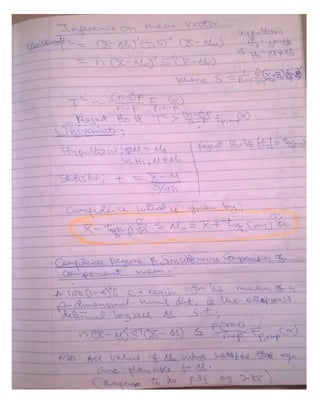 Inference on mean vector
Hypothesis
Multivariate T² = (x̄-μ₀)'(1/n S)⁻¹ (x̄-μ₀)
H₀: μ=μ₀
vs H₁: μ≠μ₀
= n (x̄-μ₀)' S⁻¹ (x̄-μ₀)
where S = 1/n-1
T² ~ (n-1)p/n-p F p,n-p (α)
Reject H₀ if T² > (n-1)p/n-p F p,n-p (α)
1) Univariate;
Hypothesis; H₀: μ = μ₀
vs H₁: μ ≠ μ₀
Reject H₀ if |t| >
Statistic; t = x̄-μ / S/√n
Confidence interval is given by;
x̄ - t α/2 (n-1) S/√n ≤ μ₀ ≤ x̄ + t α/2 (n-1) S/√n
Confidence Regions & Simultaneous Comparisons of
component mean.
A 100(1-α)% C. region for the mean of a
p-dimensional normal dist. is the ellipsoid
defined by all μ s.t.
n(x̄-μ)'S⁻¹(x̄-μ) ≤ p(n-1)/n-p F p,n-p (α)
NB: All values of μ which satisfies this eqn
are plausible for μ.